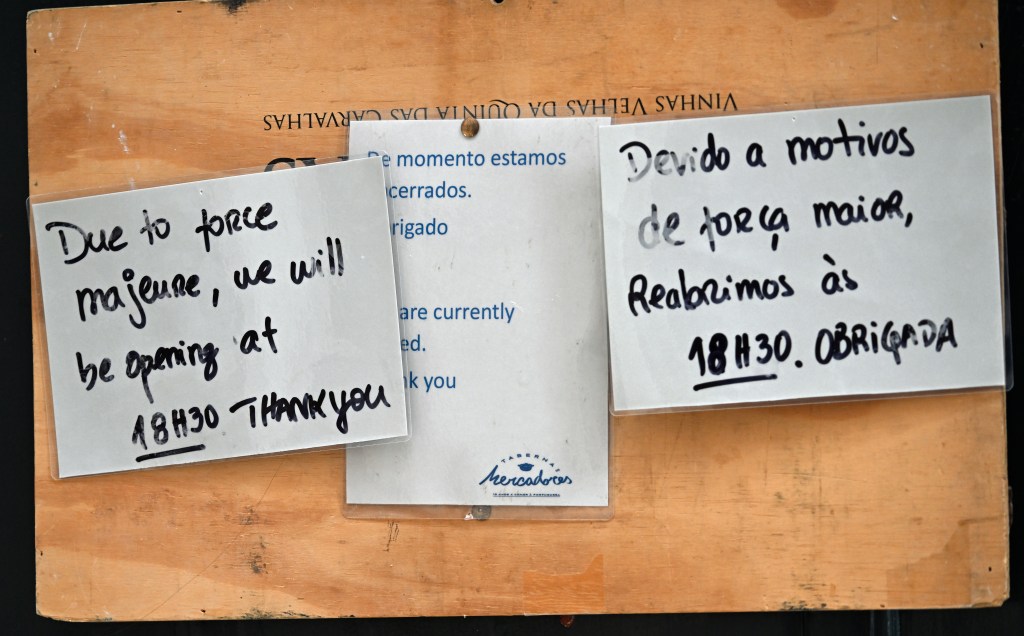 VINHAS VELHAS DA QUINTA DAS CARVALHAS
Due to force
majeure, we will
be opening at
18H30 THANK YOU
De momento estamos
cerrados.
rigado
are currently
ed.
nk you
TABERNA
Mercadores
Devido a motivos
de força maior,
Reabrimos às
18H30. OBRIGADA